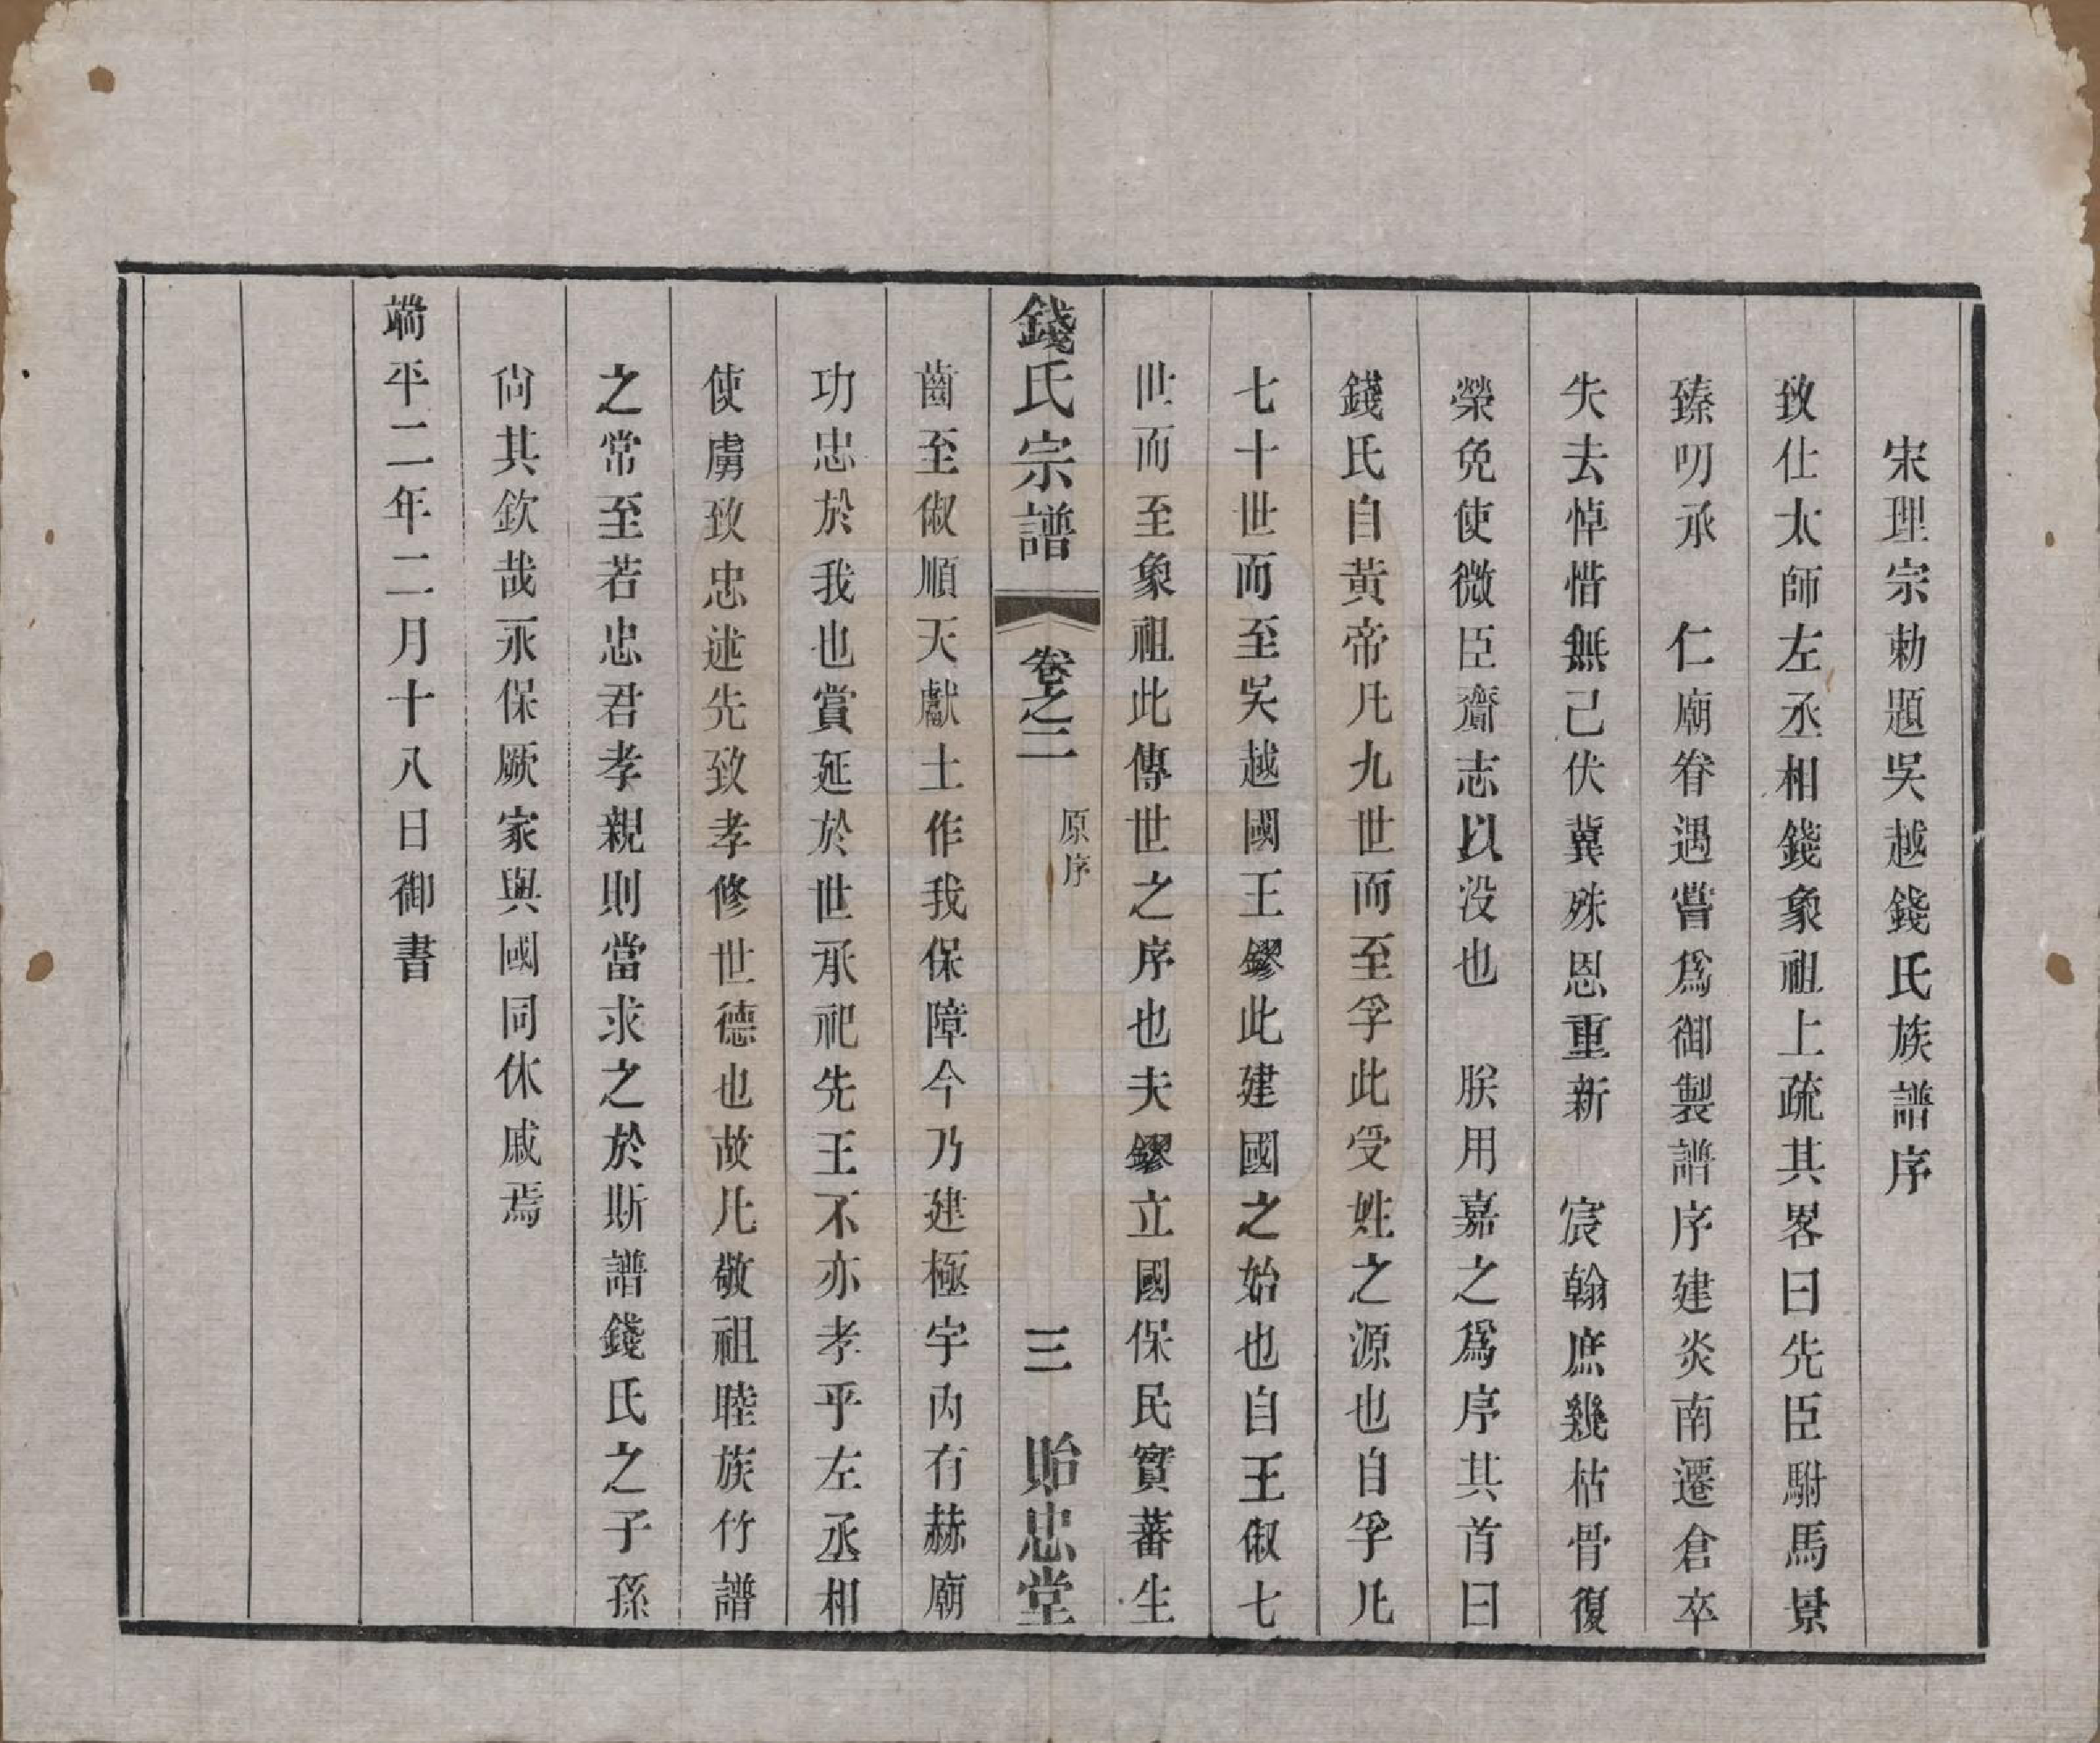 宋理宗勅題吳越錢氏族譜序
致仕太師左丞相錢象祖上疏其畧曰先臣駙馬景
臻叨承　仁廟眷遇嘗爲御製譜序建炎南遷倉卒
失去悼惜無已伏冀殊恩重新　宸翰庶幾枯骨復
榮免使微臣齎志以没也　朕用嘉之爲序其首曰
錢氏自黃帝凡九世而至孚此受姓之源也自孚凡
七十世而至吳越國王鏐此建國之始也自王俶七
世而至象祖此傳世之序也夫鏐立國保民實蕃生
錢氏宗譜　卷之二　原序　三　貽忠堂
齒至俶順天獻土作我保障今乃建極宇內有赫廟
功忠於我也賞延於世承祀先王不亦孝乎左丞相
使虜致忠述先致孝修世德也故凡敬祖睦族竹譜
之常至若忠君孝親則當求之於斯譜錢氏之子孫
尚其欽哉永保厥家與國同休戚焉
端平二年二月十八日御書